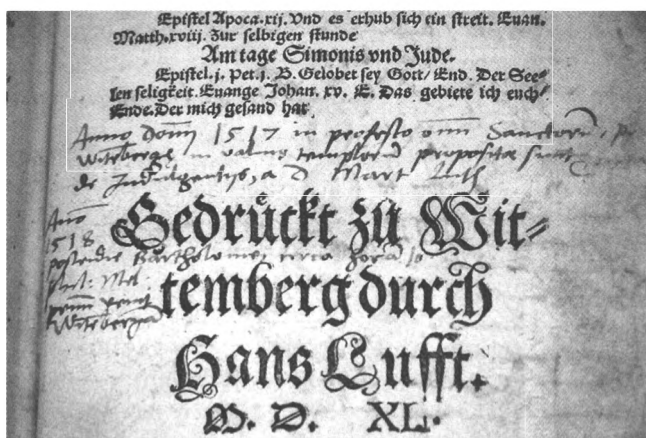 Epistel Apoca.xij. Vnd es erhub sich ein streit. Euan.
Matth.xviij. Zur selbigen stunde
Am tage Simonis vnd Jude.
Epistel.j. Pet.j. B. Gelobet sey Gott/ End. Der See⸗
len seligkeit. Euange Johan. xv. E. Das gebiete ich euch/
Ende. Der mich gesand hat
Anno domini 1517 in profesto omnium Sanctorum,
Witebergae in valuis templorum propositae sunt
de Indulgentiis, a D Mart Luth
Gedrückt zu Wit⸗
Anno
1518
postridie Bartholomei circa horam 10
temberg durch
Phil: Mel:
Witebergam
Hans Lufft.
M. D. XL.